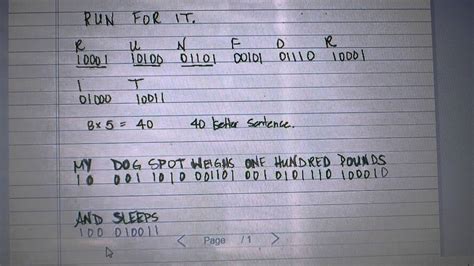 RUN FOR IT.
R U N F O R
10001 10100 01101 00101 01110 10001
I T
01000 10011
8x5 = 40 40 letter sentence.
MY DOG SPOT WEIGHS ONE HUNDRED POUNDS
10 001 1010 001101 001 0101110 100010
AND SLEEPS
100 010011
Page /1